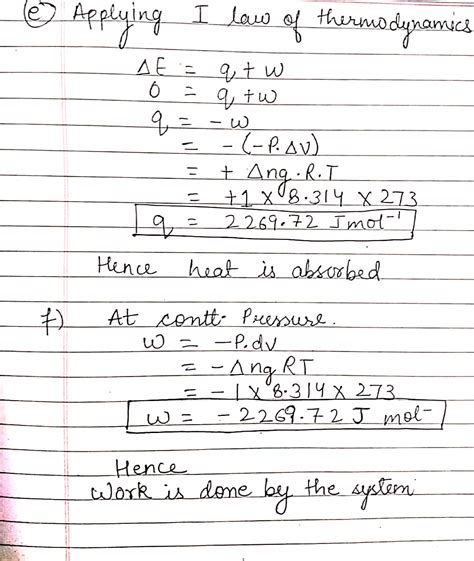 (e) Applying I law of thermodynamics
ΔE = q + w
0 = q + w
q = - w
= - (- P. ΔV)
= + Δng . R. T
= +1 × 8.314 × 273
q = 2269.72 J mol⁻¹
Hence heat is absorbed
f) At contt. Pressure.
w = - P. dv
= - Δng RT
= - 1 × 8.314 × 273
w = - 2269.72 J mol⁻
Hence
Work is done by the system